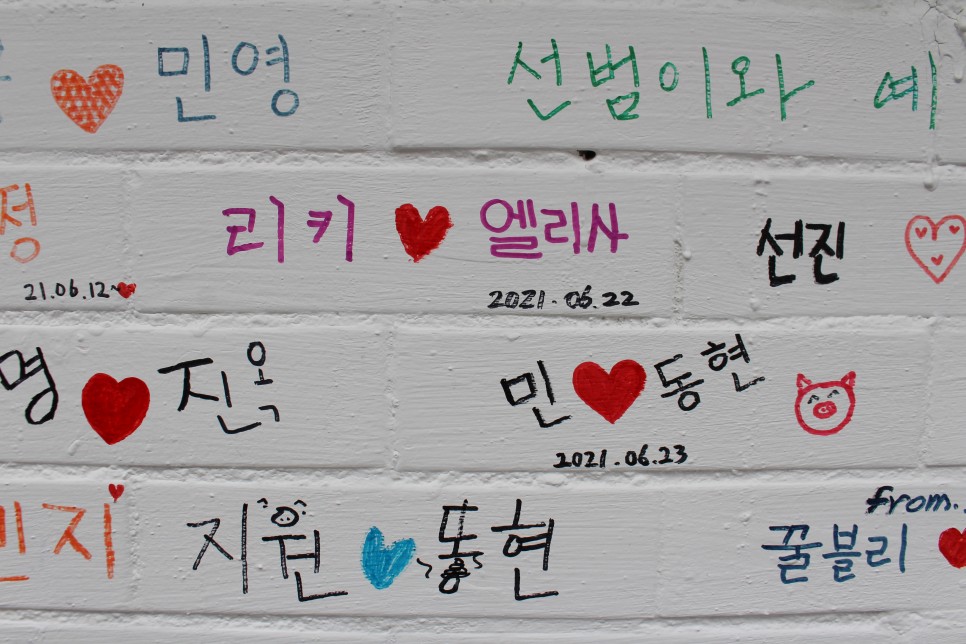 민영
선범이와 예
정
21.06.12~
리키 ♥ 엘리사
2021.06.22
선진
명 ♥ 진옥
민 ♥ 동현
2021.06.23
민지
지원 동현
from..
꿀블리